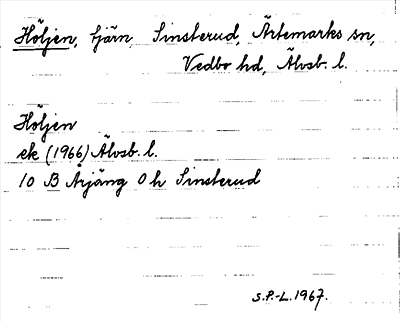 Höljen, tjärn, Sinsterud, Ärtemarks sn,
Vedbo hd, Älvsb. l.
Höljen
ek (1966) Älvsb. l.
10 B Årjäng 0 h Sinsterud
S.P.-L. 1967.